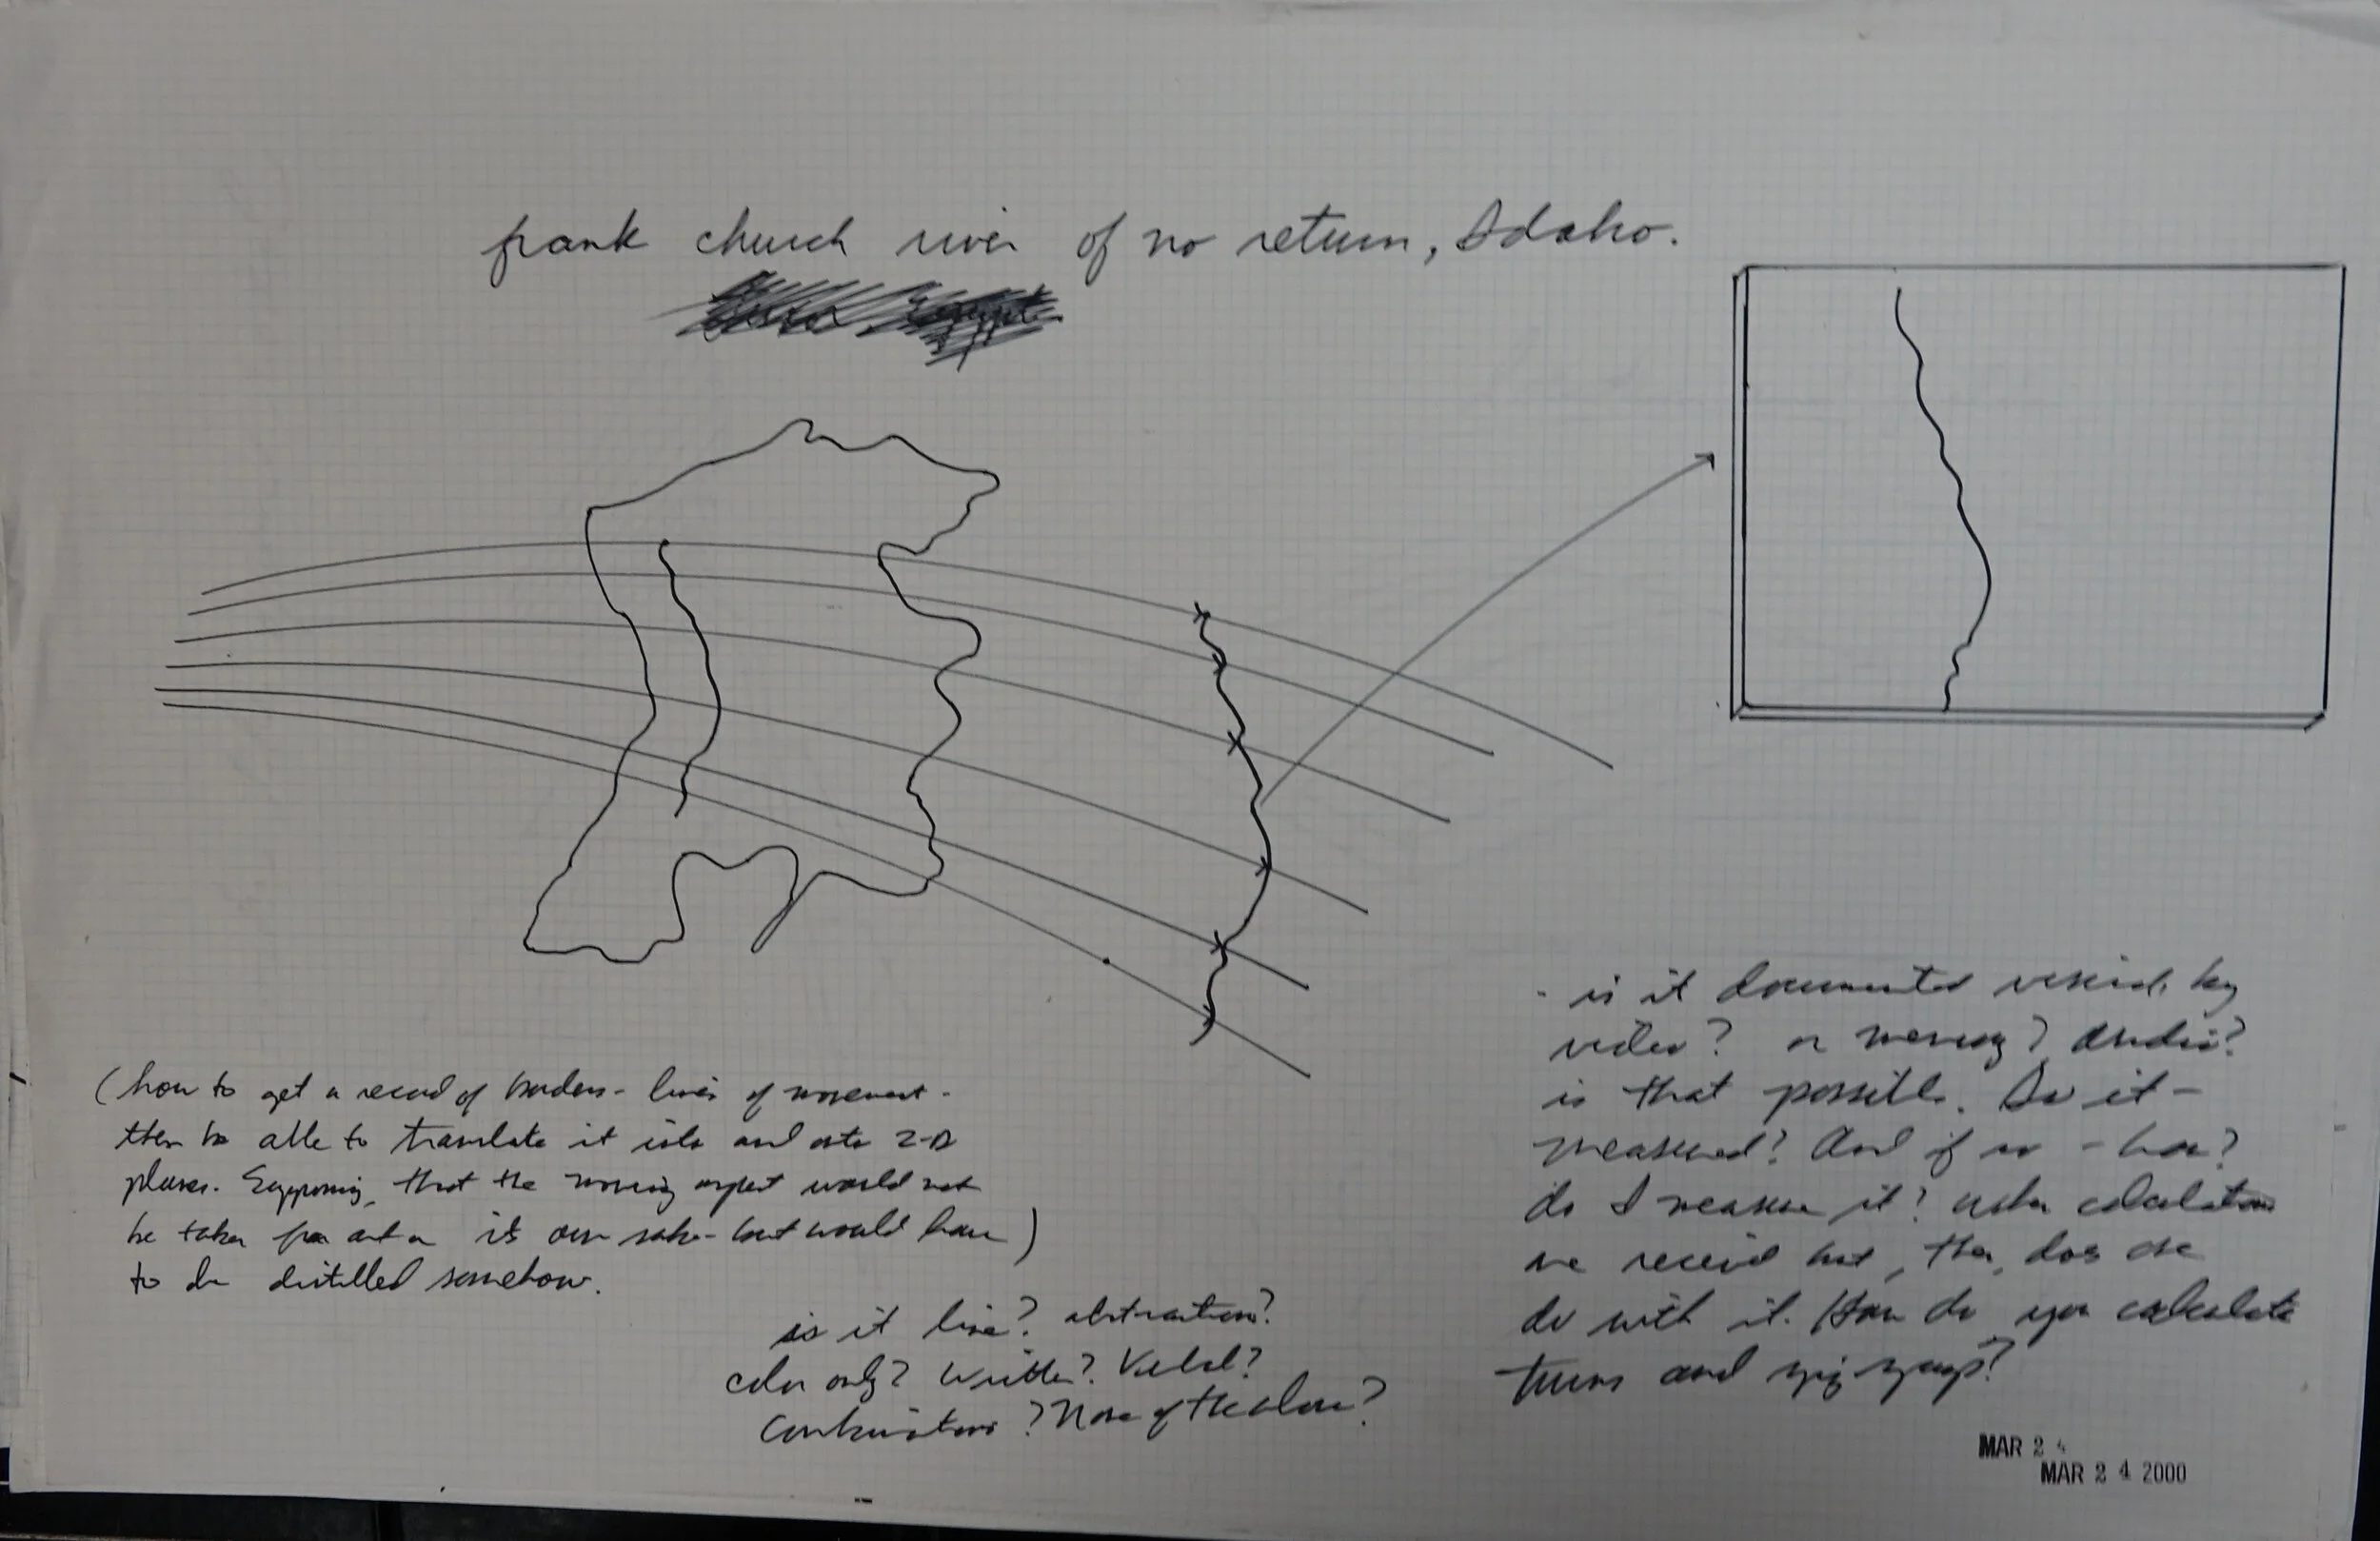 frank church river of no return, Idaho.
(how to get a record of borders - lines of movement -
then be able to translate it into and onto 2-D
planes. Supposing, that the moving aspect would not
be taken for art in its own sake - but would have)
to be distilled somehow.
is it line? abstraction?
color only? Written? Verbal?
Combinations? None of the above?
- is it documented by
video? or memory? Audio?
is that possible. Is it -
measured? And if so - how?
do I measure it? calculations
we record but, then, does one
do with it. How do you calculate
turns and zig zags?
MAR 2
MAR 2 4 2000